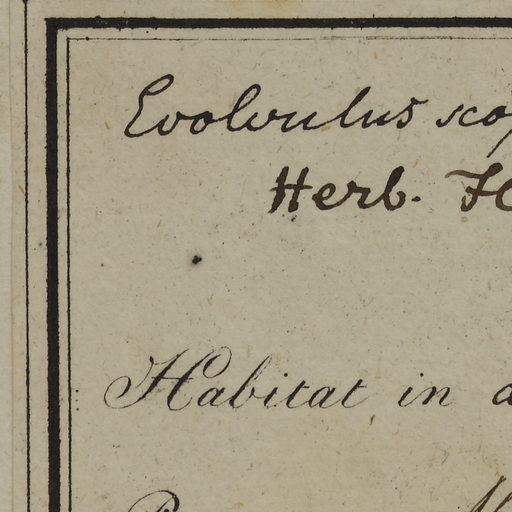 Evolvulus
Herb.
Habitat in